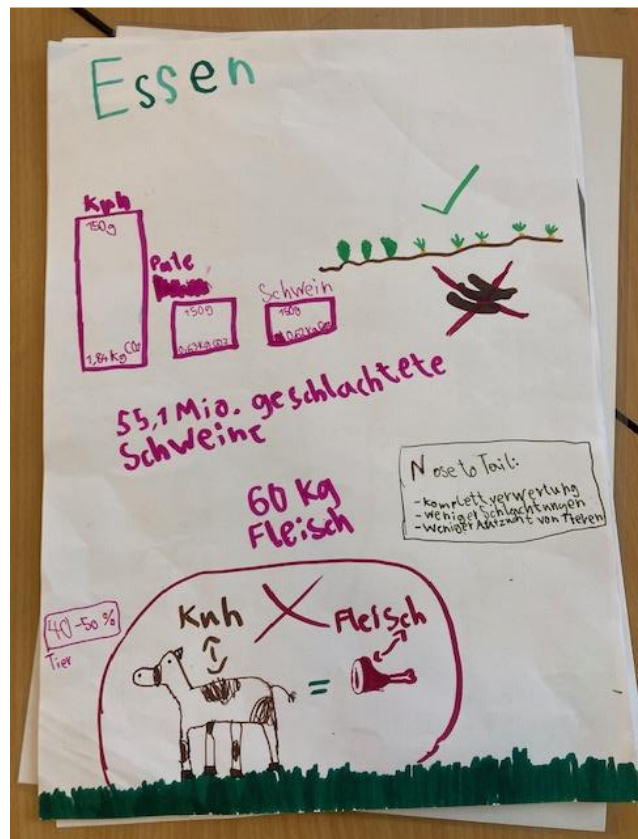 Essen
Kuh
150g
1,84 kg CO2
Pute
150g
0,62 kg CO2
Schwein
150g
0,62 kg CO2
55,1 Mio. geschlachtete
Schweine
60 kg
Fleisch
Nose to Tail:
- komplett verwertung
- weniger Schlachtungen
- weniger Aufzucht von Tieren
40-50%
Tier
Kuh
Fleisch
=